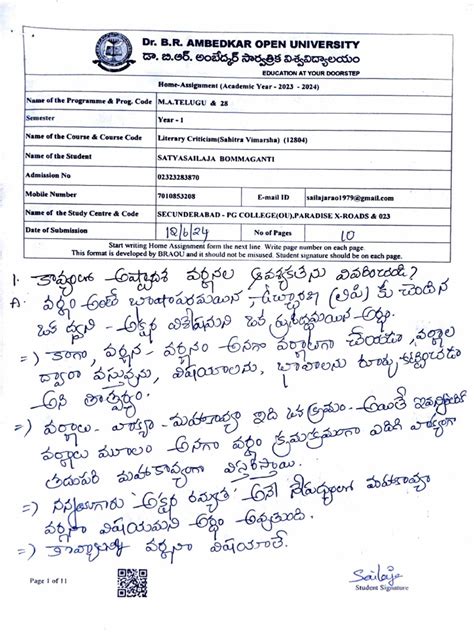 Dr. B.R. AMBEDKAR OPEN UNIVERSITY
డా. బి.ఆర్. అంబేద్కర్ సార్వత్రిక విశ్వవిద్యాలయం
EDUCATION AT YOUR DOORSTEP
Home-Assignment (Academic Year - 2023 - 2024)
Name of the Programme & Prog. Code M.A.TELUGU & 28
Semester Year - 1
Name of the Course & Course Code Literary Criticism(Sahitra Vimarsha) (12804)
Name of the Student SATYASAILAJA BOMMAGANTI
Admission No 02323283870
Mobile Number 7010853208 E-mail ID sailajarao1979@gmail.com
Name of the Study Centre & Code SECUNDERABAD - PG COLLEGE(OU),PARADISE X-ROADS & 023
Date of Submission 18/6/24 No of Pages 10
Start writing Home Assignment form the next line Write page number on each page.
This format is developed by BRAOU and it should not be misused. Student signature should be on each page.
1. కావ్యంలో అష్టాదశ వర్ణనల ఆవశ్యకతను వివరించండి?
A. వర్ణం అంటే (లిపి) కు చెందిన
ఒక ధ్వని - అక్షర విశేషమని ఒక అర్థం.
=) కాగా, వర్ణన - వర్ణనం అనగా వర్ణాల
ద్వారా వస్తువును, విషయాలను, భావాలను
అని తాత్పర్యం.
=) వర్ణాలు - వాక్యా - మహాకావ్యం ఇది ఒక క్రమం - అయితే
వర్ణాలు మూలం అనగా వర్ణం క్రమక్రమంగా ఎదిగి వాక్యంగా
తదుపరి మహాకావ్యంగా విస్తరిస్తాయి.
=) నన్నయగారు 'అక్షర రమ్యత' అనే మహాకావ్యా
వర్ణనా విషయమని అర్థం అవుతుంది.
=) వర్ణనా విషయాలే.
Page 1 of 11
Sailaja
Student Signature